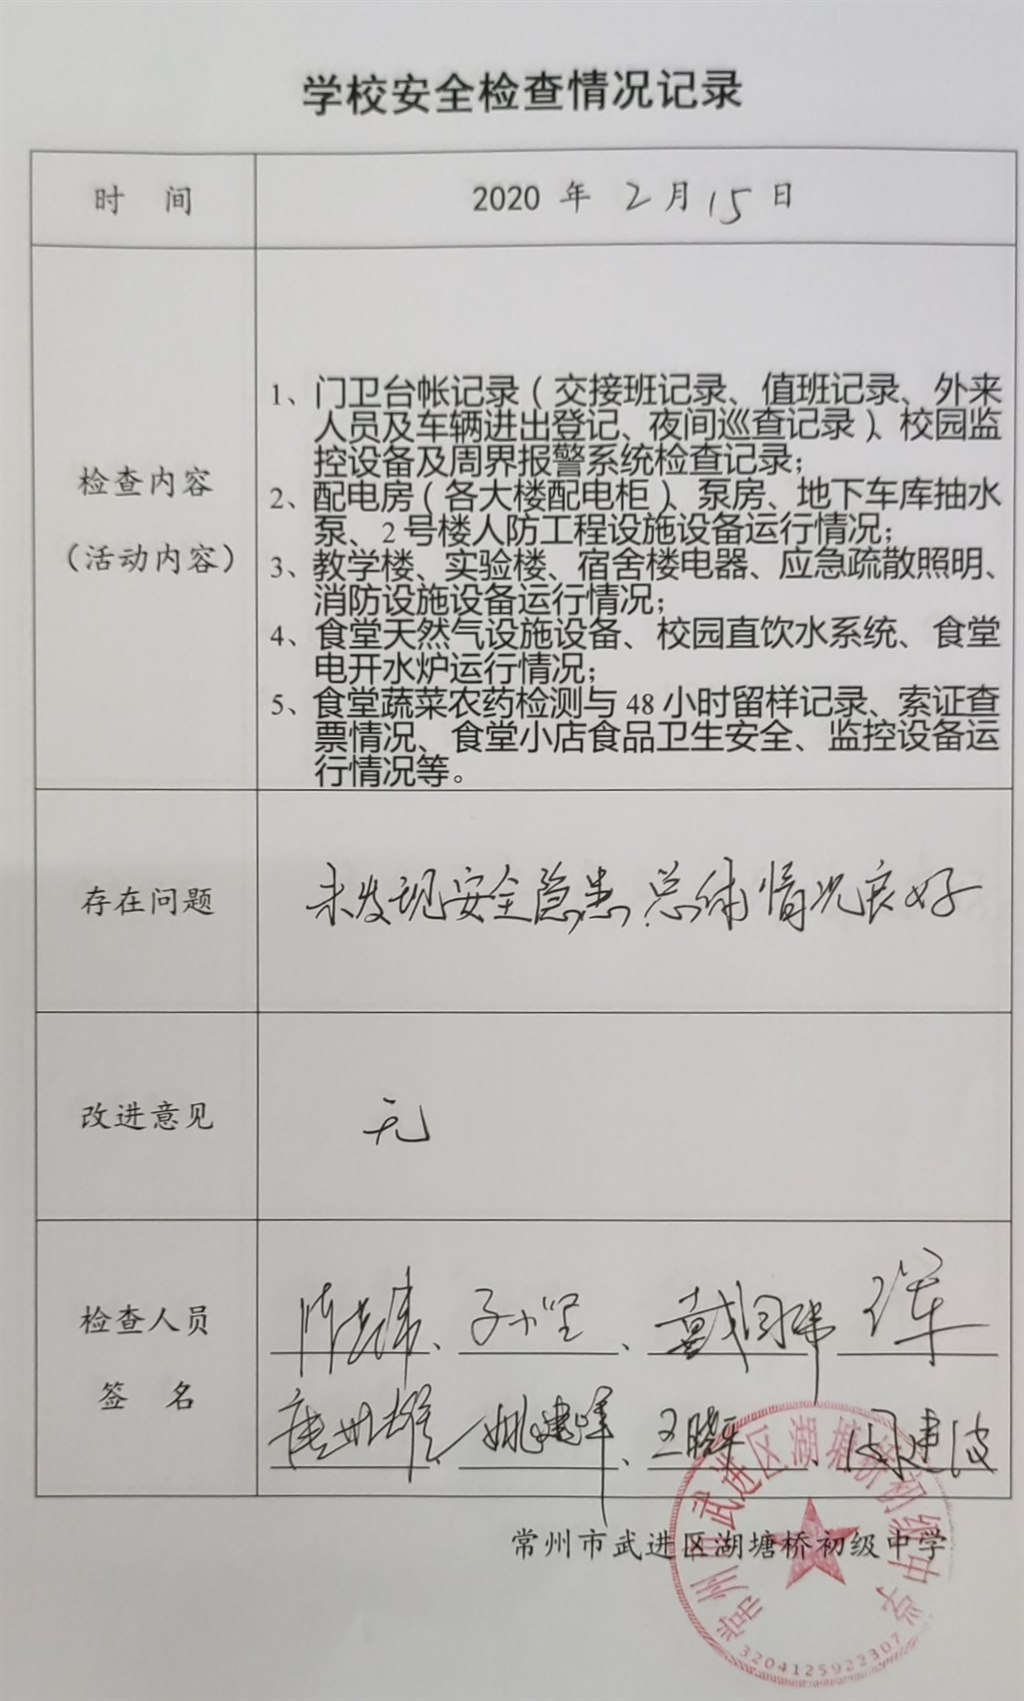 学校安全检查情况记录
时 间
2020 年 2月15日
检查内容
（活动内容）
1、门卫台帐记录（交接班记录、值班记录、外来
人员及车辆进出登记、夜间巡查记录）、校园监
控设备及周界报警系统检查记录；
2、配电房（各大楼配电柜）、泵房、地下车库抽水
泵、2号楼人防工程设施设备运行情况；
3、教学楼、实验楼、宿舍楼电器、应急疏散照明、
消防设施设备运行情况；
4、食堂天然气设施设备、校园直饮水系统、食堂
电开水炉运行情况；
5、食堂蔬菜农药检测与48小时留样记录、索证查
票情况、食堂小店食品卫生安全、监控设备运
行情况等。
存在问题
未发现安全隐患 总体情况良好
改进意见
无
检查人员
签 名
姚建峰、王晓平
常州市武进区湖塘桥初级中学
常州市武进区湖塘桥初级中学
3204125922307